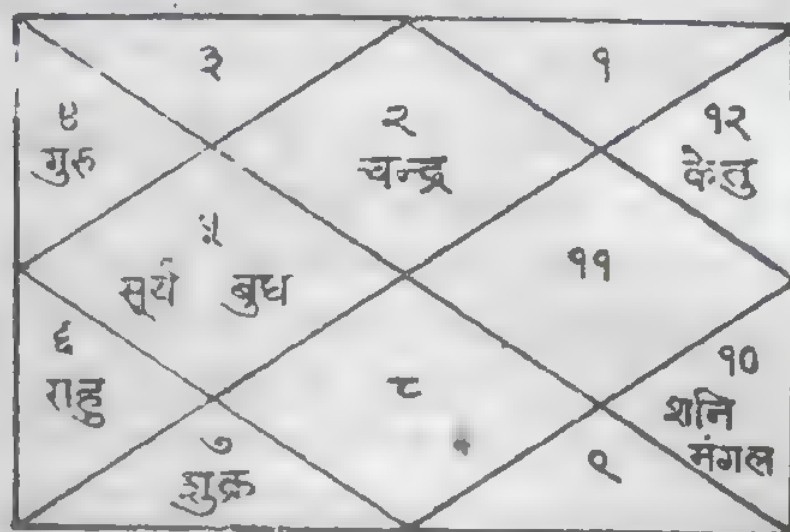 ३
१
४
गुरु
२
चन्द्र
१२
केतु
५
सूर्य बुध
११
६
राहु
८
१०
शनि
मंगल
७
शुक्र
९